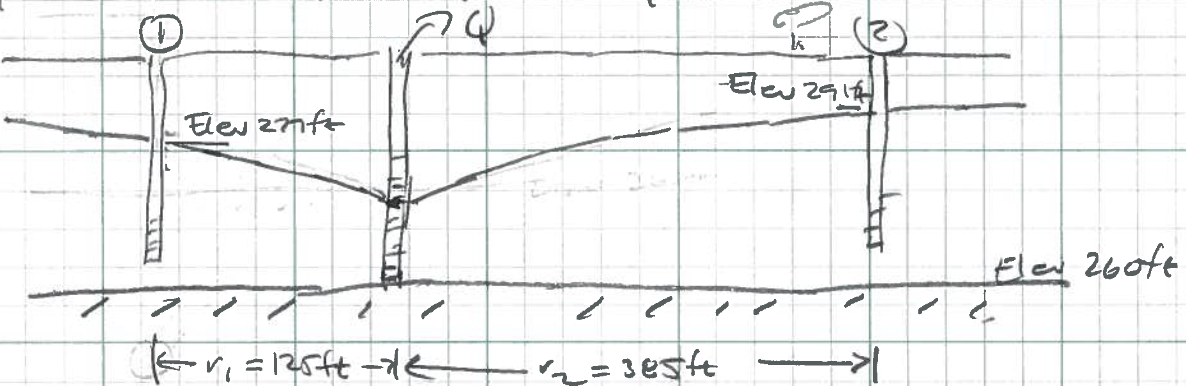 ① Q ②
Elev 291ft
Elev 277ft
Elev 260ft
r₁ = 125ft r₂ = 385ft